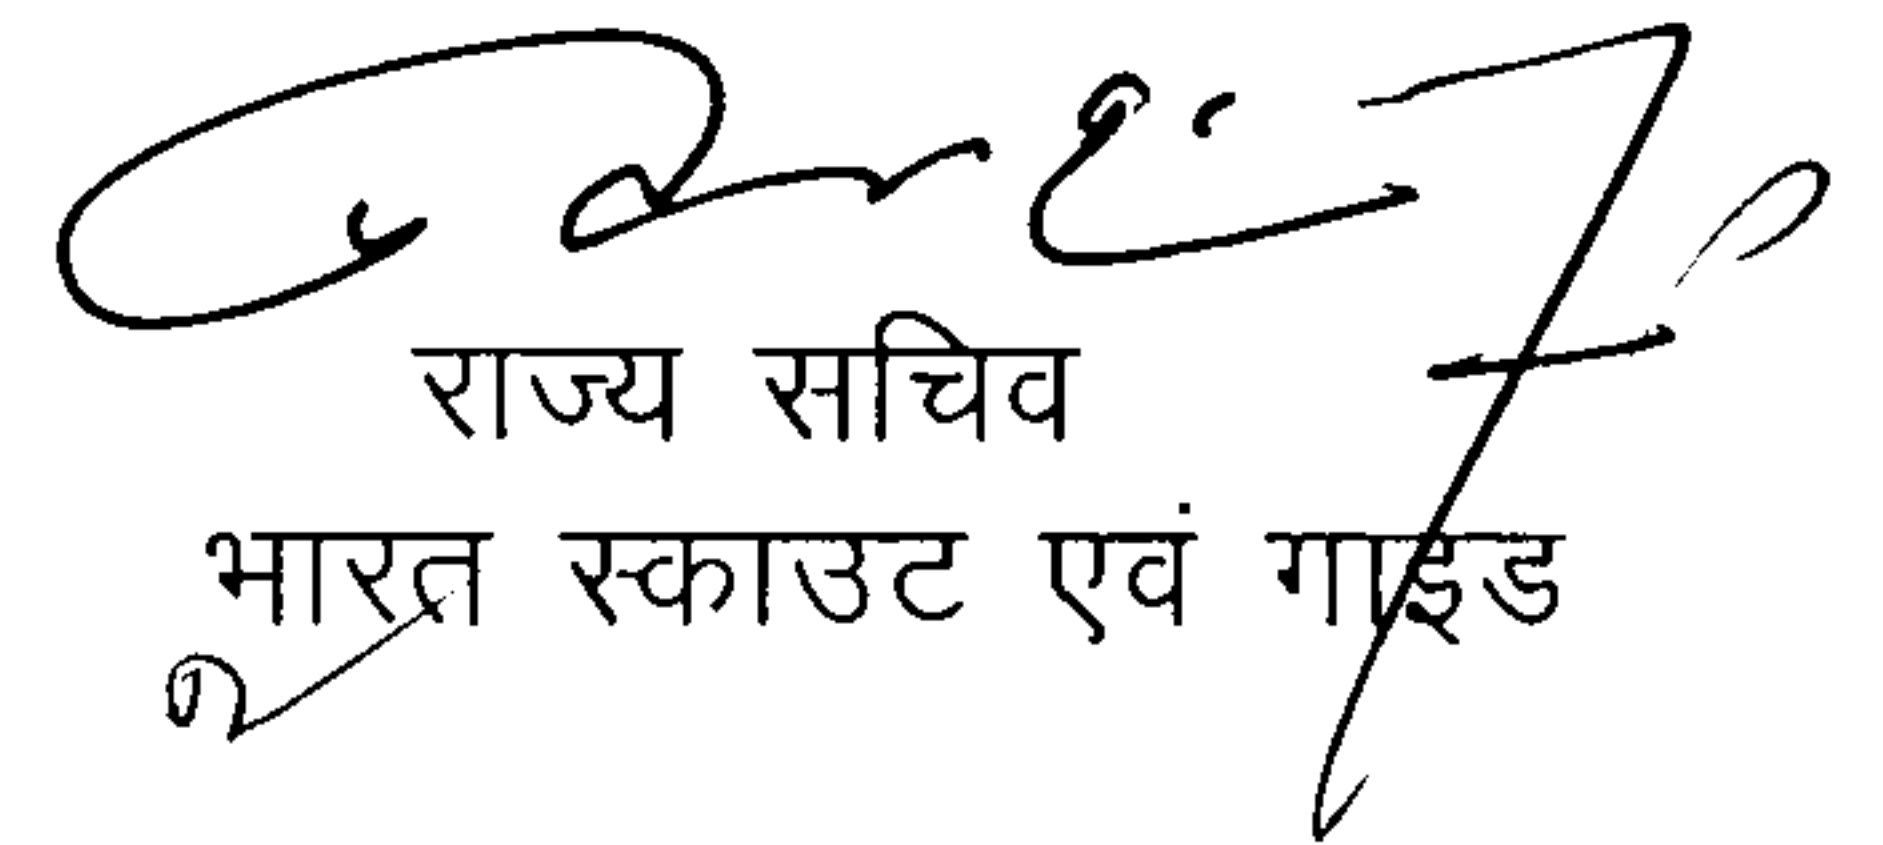 राज्य सचिव
भारत स्काउट एवं गाइड